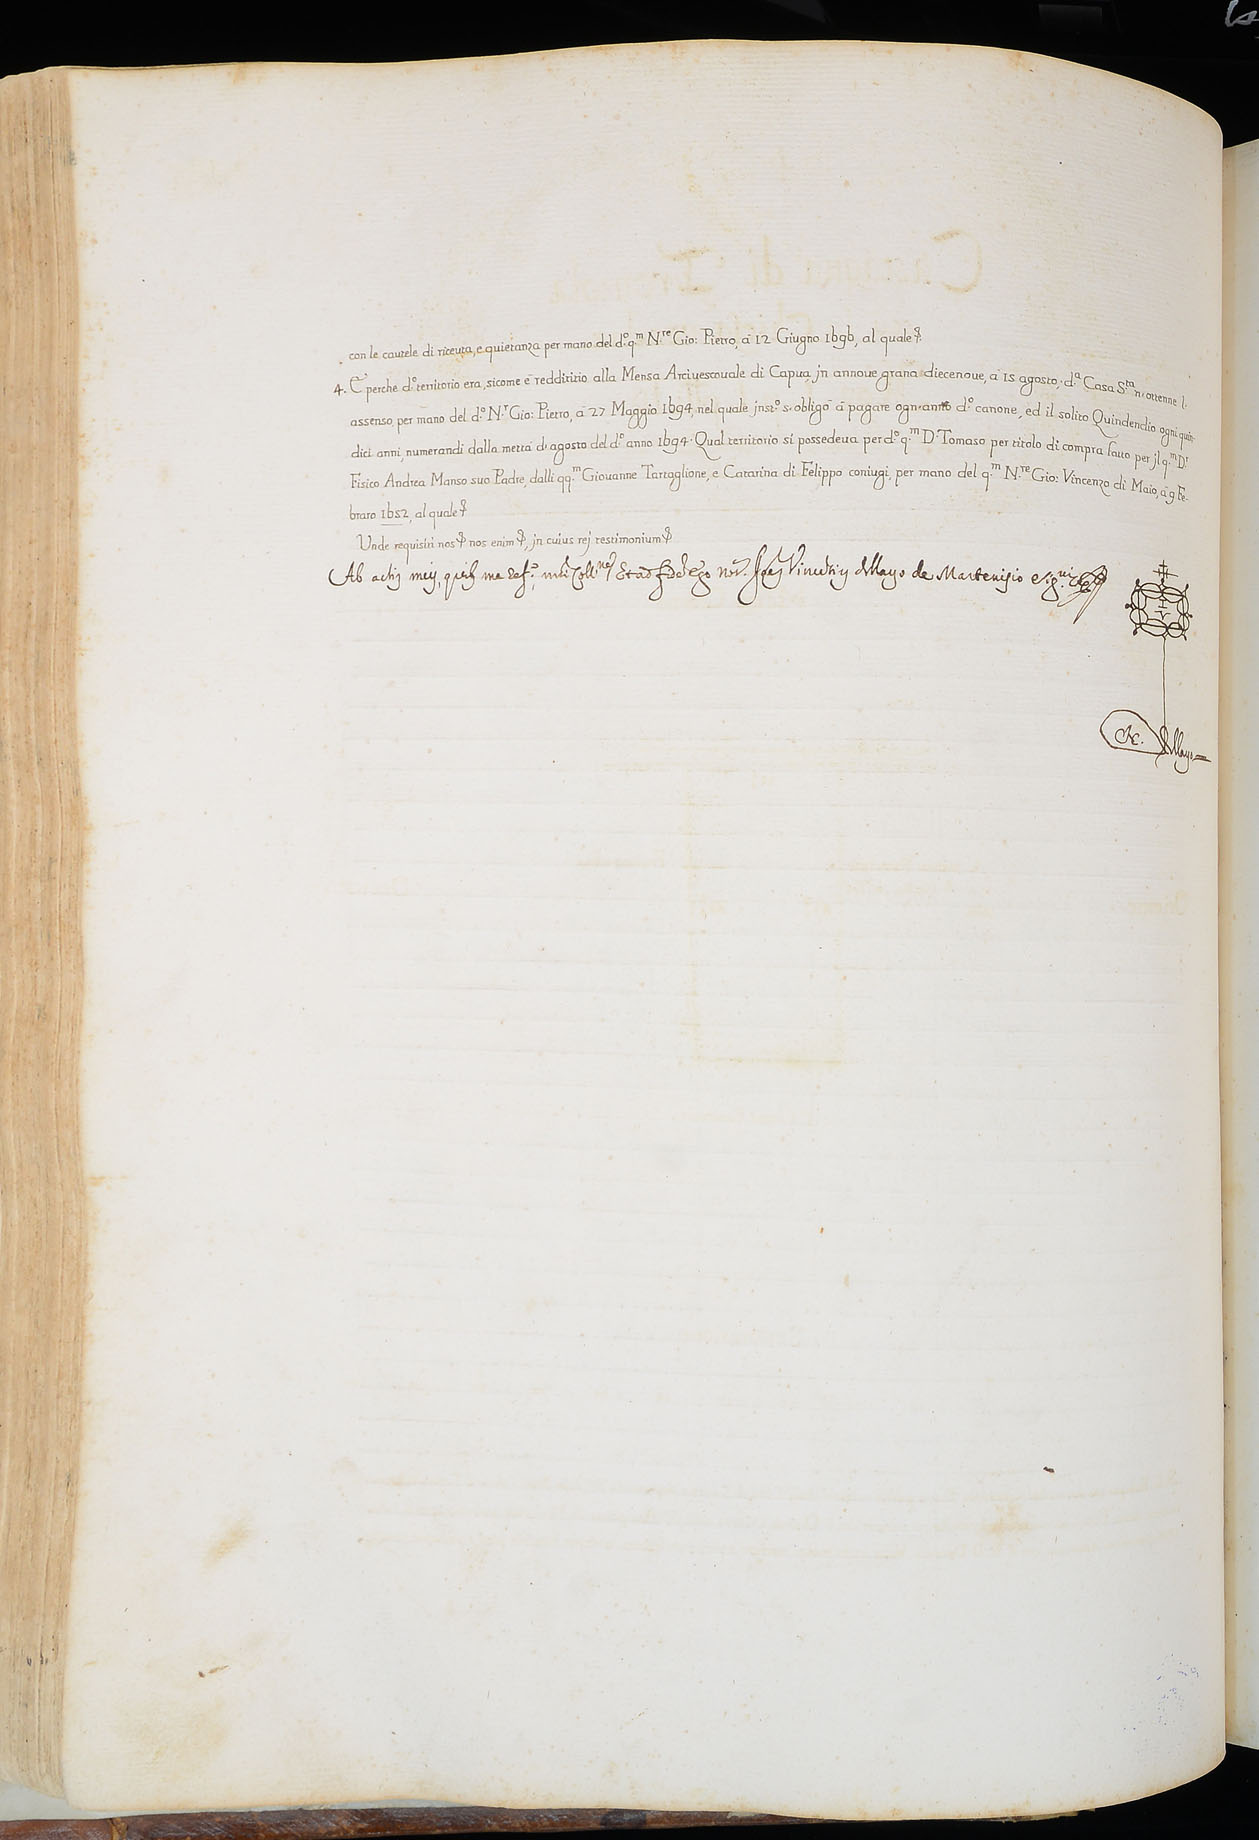 con le cautele di riceuta, e quietanza per mano del d.º q.m N.re Gio: Pietro, à 12 Giugno 1696, al quale &.
4. E perche d.º territorio era, sicome è reddititio alla Mensa Arciuescouale di Capua, jn annoue grana diecenoue, à 15 agosto, d.a Casa S.ta n'ottenne l'
assenso, per mano del d.º N.r Gio: Pietro, à 27 Maggio 1694, nel quale jnst.º s'obligò à pagare ogn'anno d.º canone, ed il solito Quindendio ogni quin-
dici anni, numerandi dalla mettà d'agosto del d.º anno 1694. Qual territorio si possedeua per d.º q.m D. Tomaso per titolo di compra fatto per jl q.m D.r
Fisico Andrea Manso suo Padre, dalli qq.m Giouanne Tartaglione, e Catarina di Felippo coniugi, per mano del q.m N.re Gio: Vincenzo di Maio, à 9 Fe-
braro 1652, al quale &
Unde requisiti nos & nos enim &, jn cuius rej testimonium &
Ab actis meis, Ego Not.r Vincentius de Mayo de Martenisio sig.ui
IV
N. de Mayo